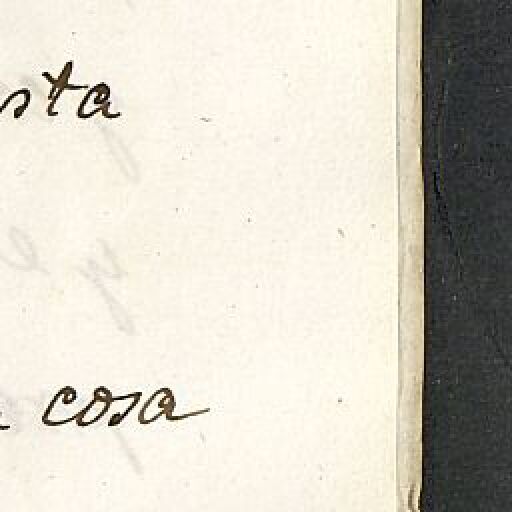 sta
cosa